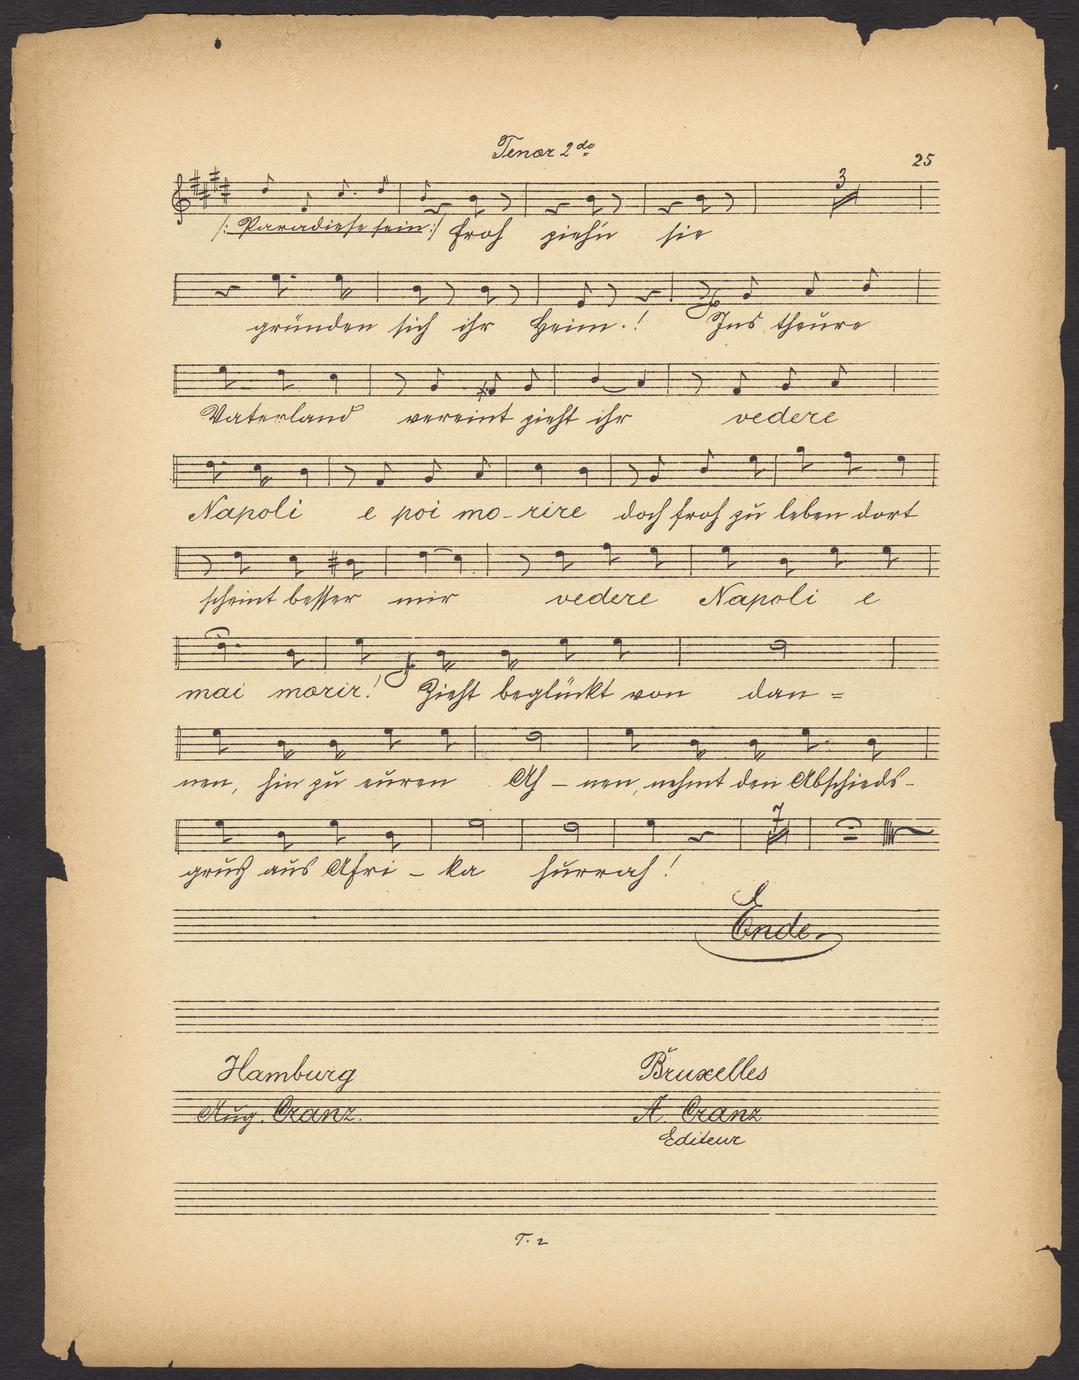 Tenor 2do
25
3
/: Paradiese sein :/ froh ziehn sie
gründen sich ihr Heim.! Ins theure
Vaterland vereint zieht ihr vedere
Napoli e poi mo-rire doch froh zu leben dort
scheint besser mir vedere Napoli e
mai morir! Zieht beglückt von dan =
nen, hin zu euren Ah - nen, nehmt den Abschieds-
7
gruß aus Afri - ka hurrah!
Ende
Hamburg Bruxelles
Aug. Cranz. A. Cranz
Editeur
T. 2